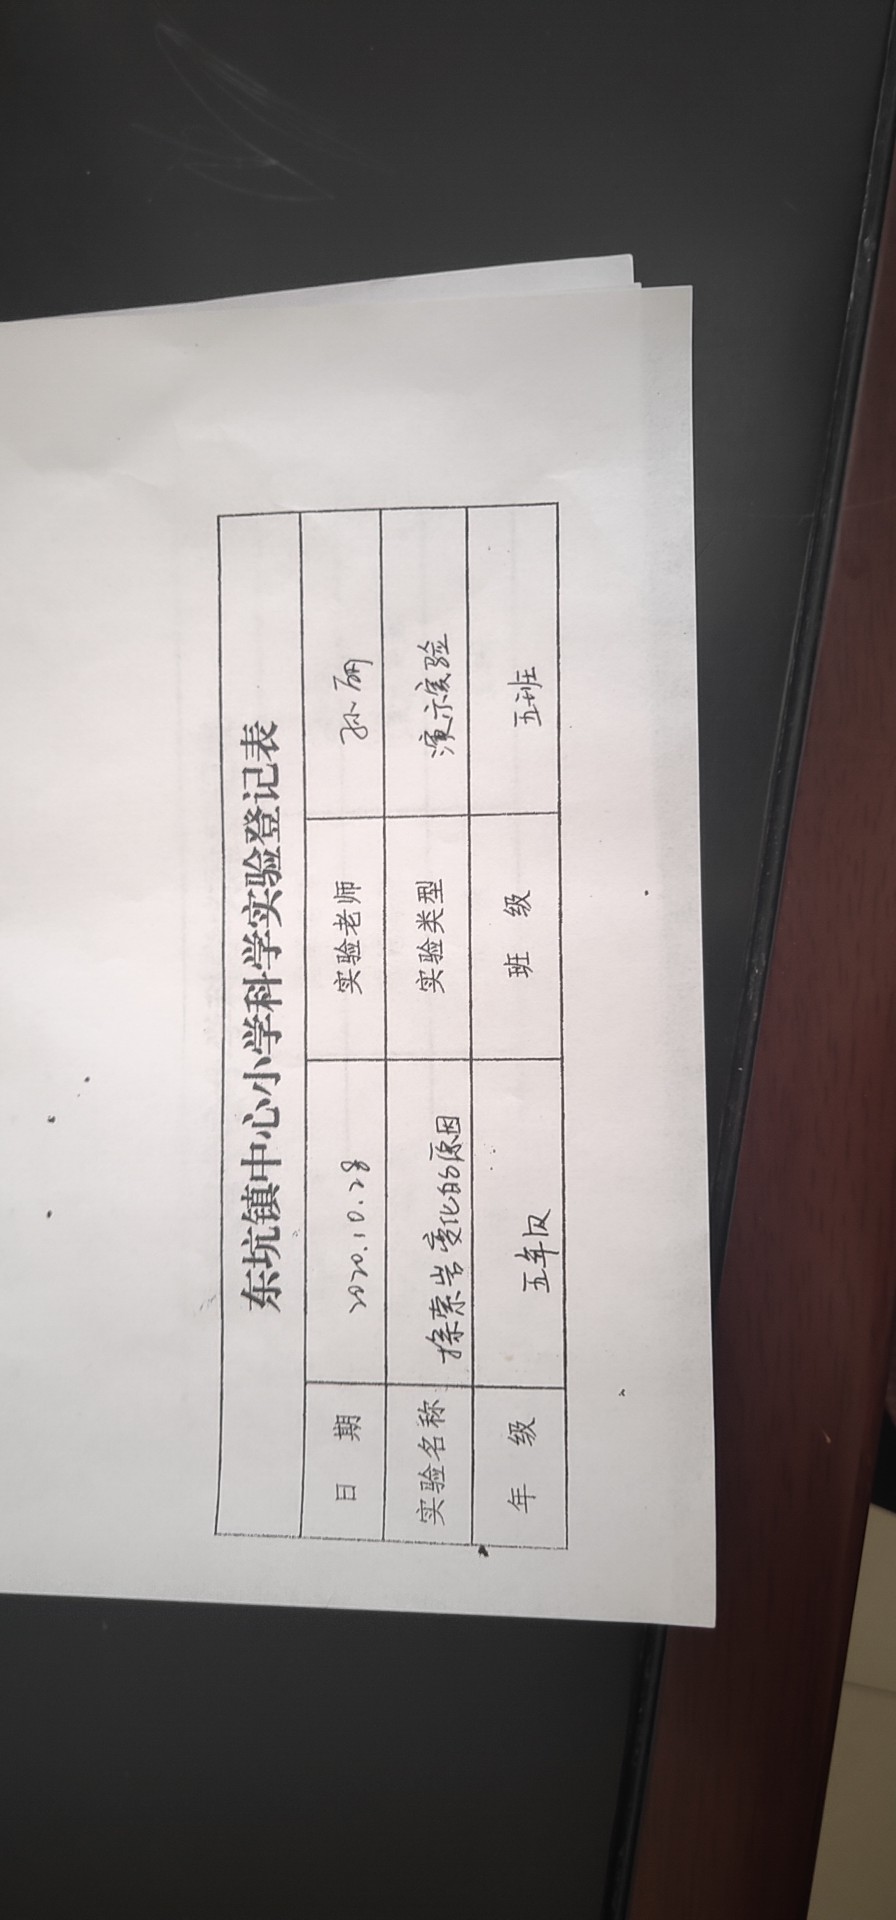 东坑镇中心小学科学实验登记表
日 期 2020.10.28 实验老师 孙
实验名称 探索岩变化的原因 实验类型 演示实验
年 级 五年级 班 级 五班